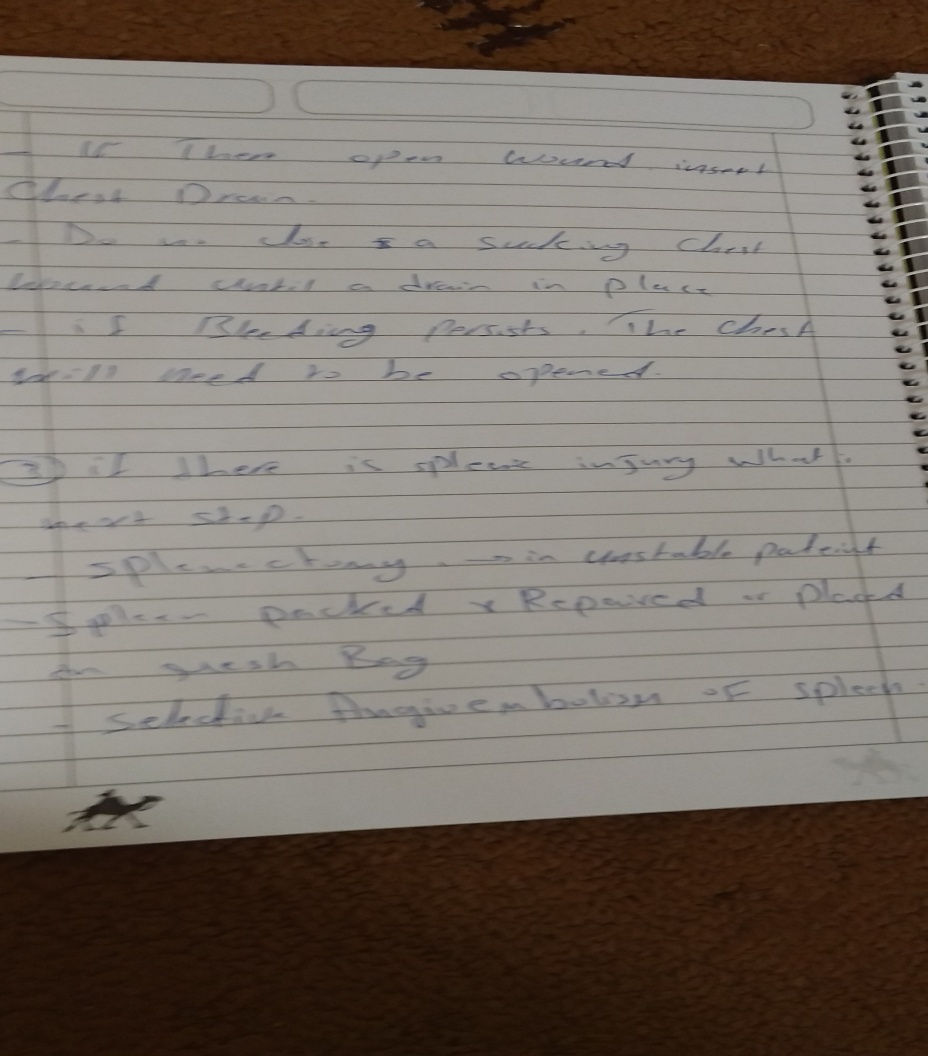 - If There open wound insert
Chest Drain.
- Do no close a sucking chest
wound until a drain in place
- if Bleeding Persists. The chest
will need to be opened.
if there is splenic injury what is
next step.
- splenectomy. → in unstable patient
- Spleen packed Repaired or placed
in mesh Bag
- selective Angioembolism of spleen.